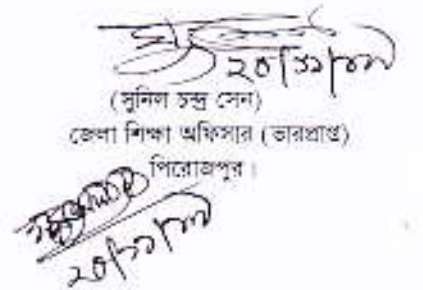 ২০/১১/০৭
(সুনিল চন্দ্র সেন)
জেলা শিক্ষা অফিসার (ভারপ্রাপ্ত)
পিরোজপুর।
২০/১১/০৭